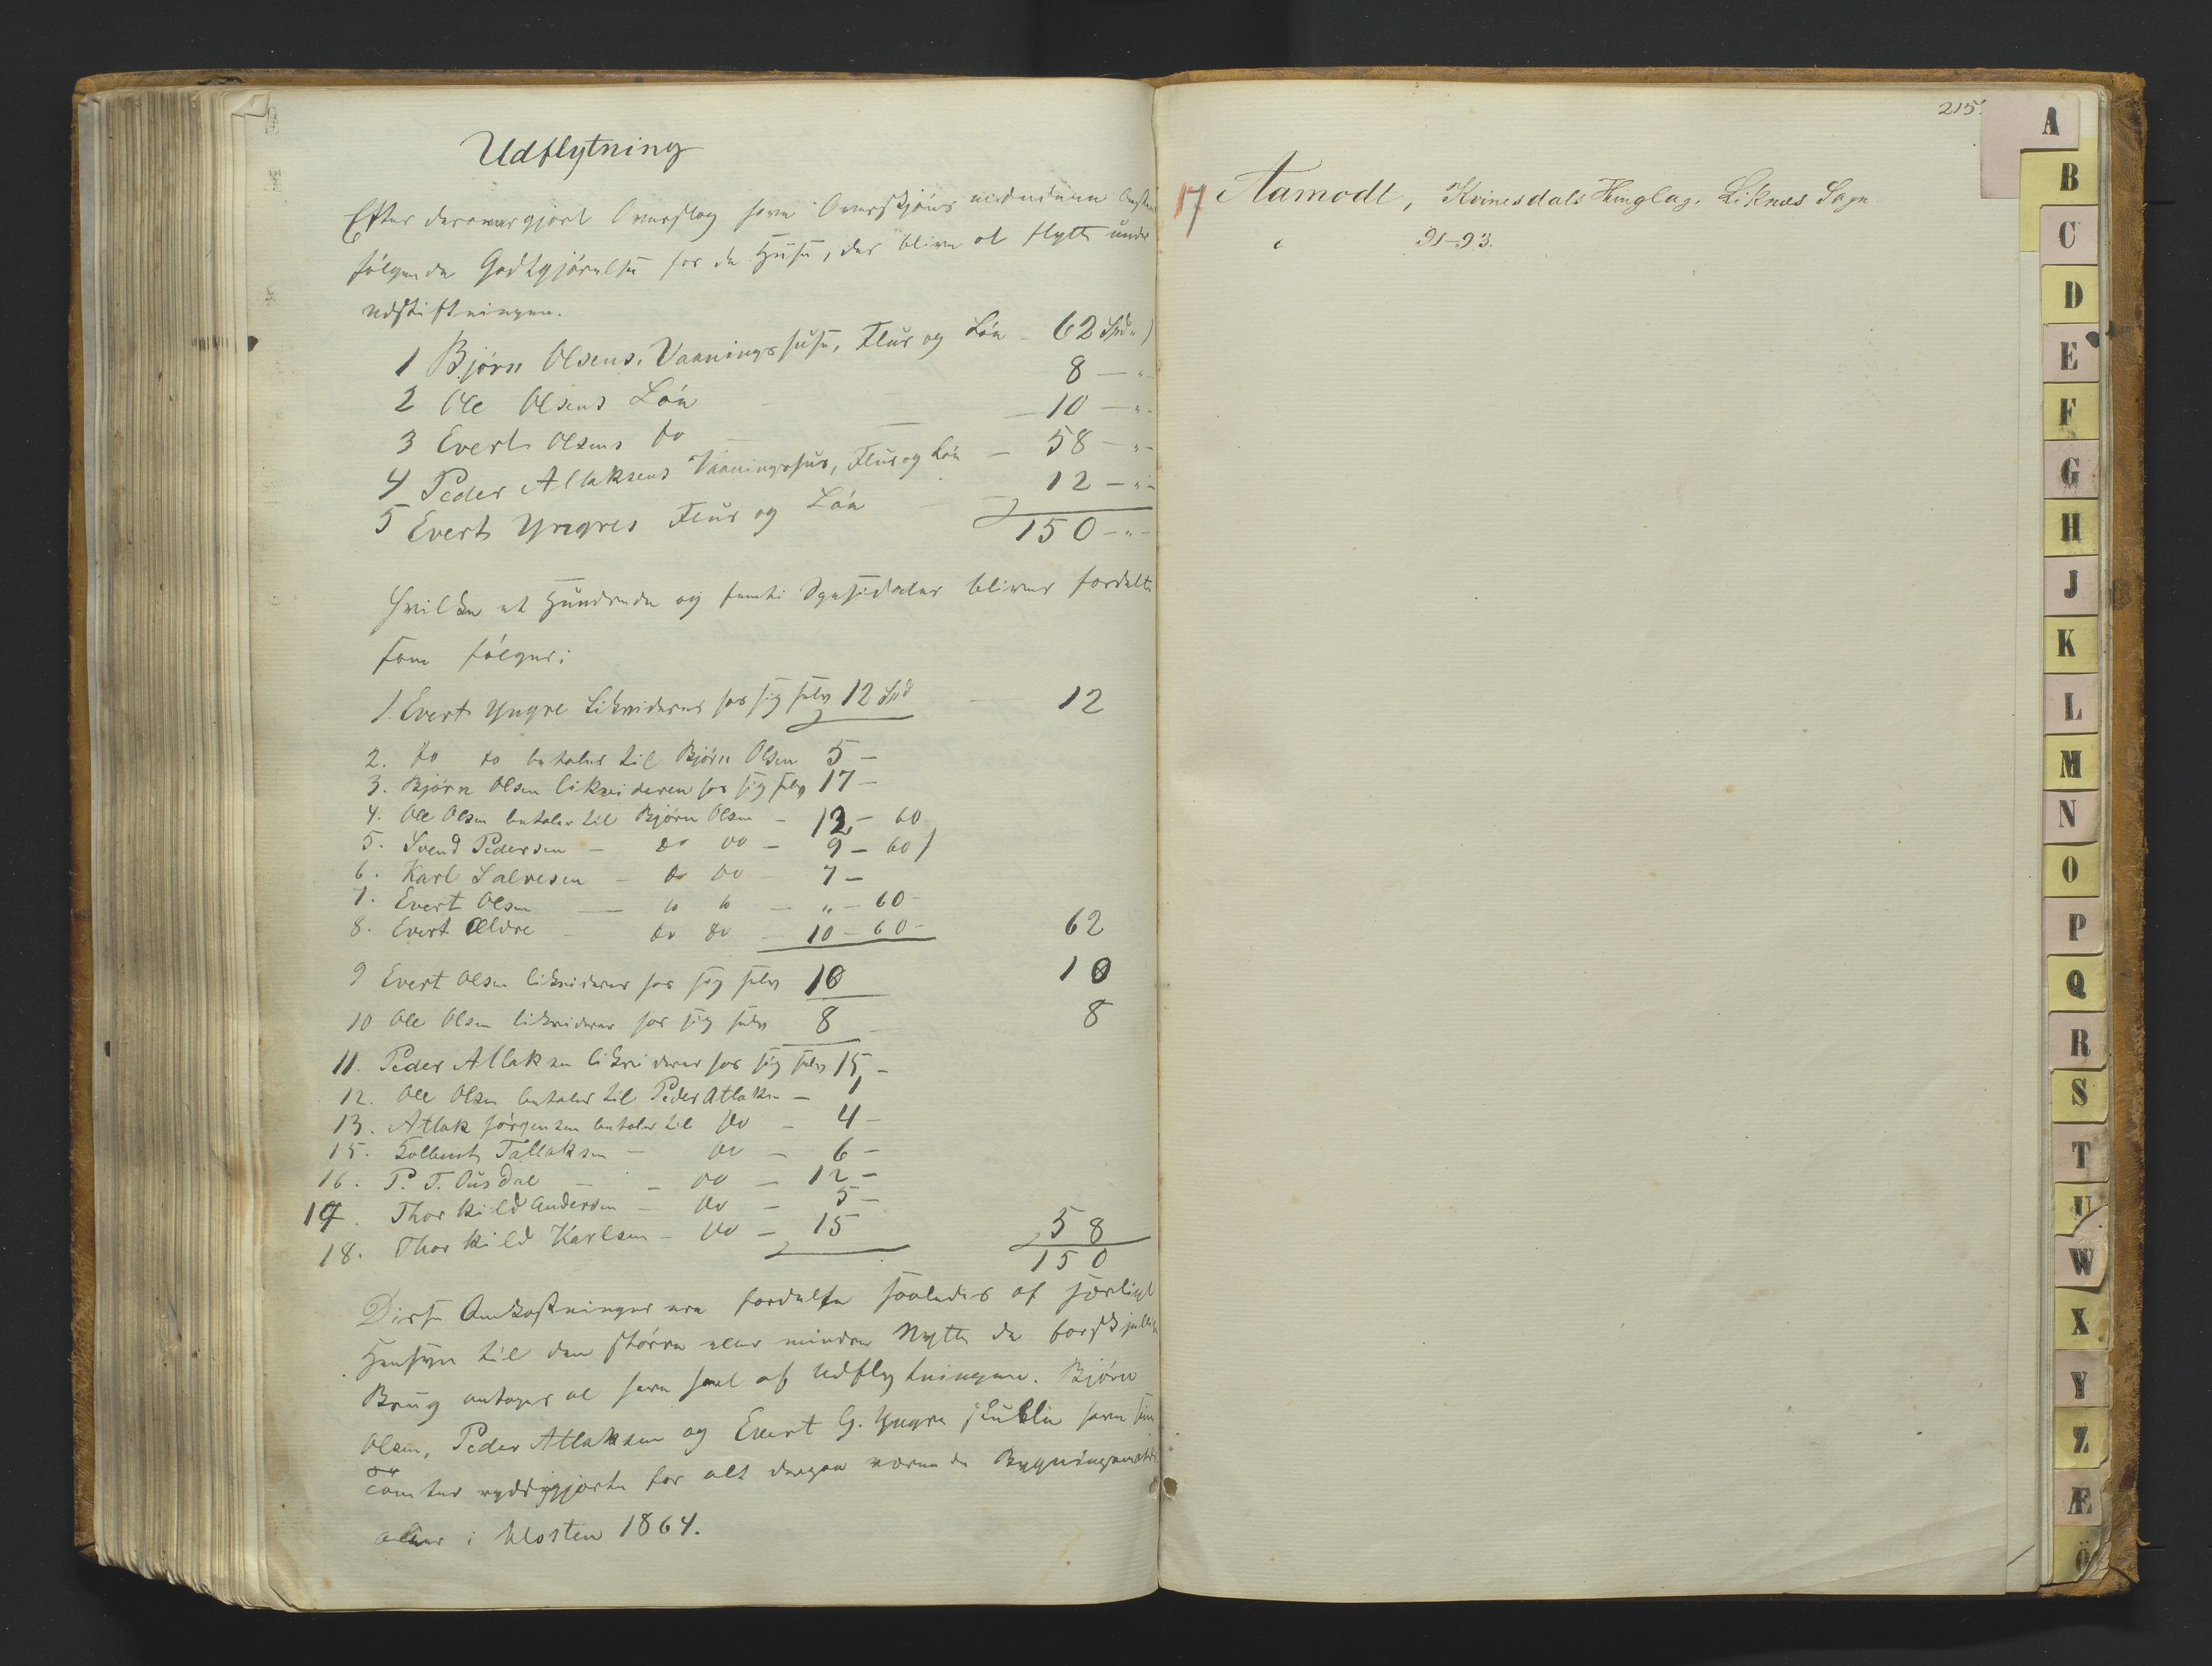 Udflytning
Efter derover gjort Overslag have Overskjøns mændene
følgende Godtgjørelse for de Huse, der blive at flytte under
udskiftningen.
1 Bjørn Olsens. Vaaningshuse, Flur og Løe - 62 Spd „
2 Ole Olsens Løe - 8 — „
3 Evert Olsens do — 10 — „
4 Peder Atlaksens Vaaningshus, Flur og Løe — 58 — „
5 Evert Yngres Flur og Løe - 12 — „
150 — „ —
Hvilke et Hundrede og femti Speciedaler bliver fordelte
som følger:
1. Evert Yngre Likviderer for sig selv 12 Spd 12
2. do do betaler til Bjørn Olsen 5 —
3. Bjørn Olsen likviderer for sig selv 17 —
4. Ole Olsen betaler til Bjørn Olsen - 12 - 60
5. Svend Pedersen - do do - 9 - 60
6. Karl Salvesen - do do - 7 -
7. Evert Olsen — do do - „ - 60 -
8. Evert Ældre - do do - 10 - 60 - 62
9 Evert Olsen likviderer for sig selv 10 10
10 Ole Olsen likviderer for sig selv 8 8
11. Peder Atlaksen likviderer for sig selv 15 -
12. Ole Olsen betaler til Peder Atlaks. - 1
13. Atlak Jørgensen betaler til do - 4 -
15. Tallaksen - do - 6 -
16. P. T. Ousdal - do - 12 -
17. Thorkild Andersen - do - 5 -
18. Thorkild Karlsen - do - 15 58
150
Disse Omkostninger ere fordelte saaledes af særligt
Hensyn til den større eller mindre Nytte de forskjellige
Brug antages at have havt af Udflytningene. Bjørn
Olsen, Peder Atlaksen og Evert G. Yngre skulle have sine
Tomter ryddiggjorte for alt derpaa værende Bygningsmateri
aler i Høsten 1864.
215.
17 Aamodt, Kvinesdals Thinglag. Liknæs Sogn
91-93.
A
B
C
D
E
F
G
H
J
K
L
M
N
O
P
Q
R
S
T
U
W
X
Y
Z
Æ
Ö